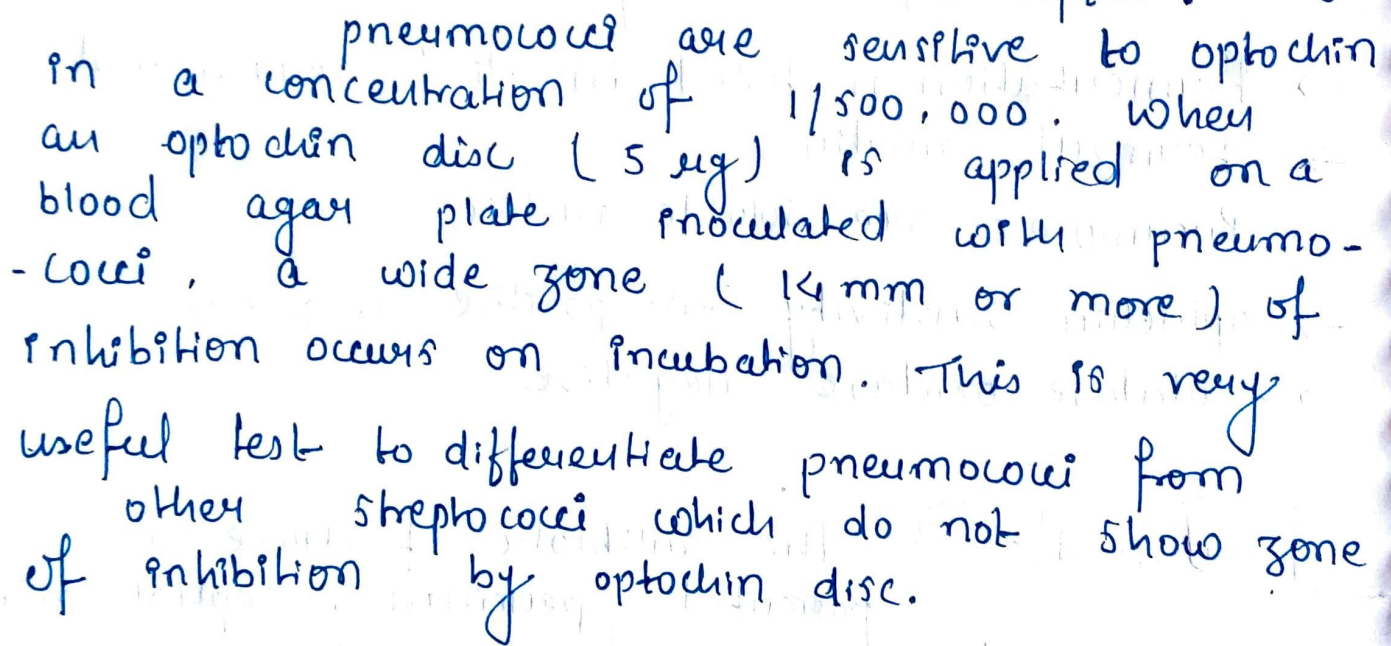 pneumococci are sensitive to optochin
in a concentration of 1/500,000. When
an optochin disc (5 µg) is applied on a
blood agar plate inoculated with pneumo-
-cocci, a wide zone (14 mm or more) of
inhibition occurs on incubation. This is very
useful test to differentiate pneumococci from
other streptococci which do not show zone
of inhibition by optochin disc.